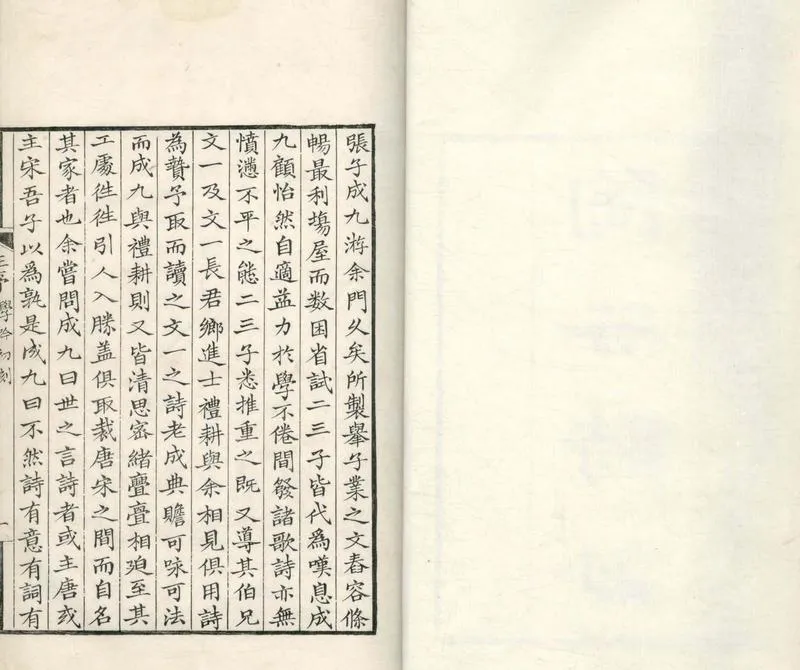 張子成九游余門久矣所製舉子業之文舂容條
暢最利塲屋而数困省試二三子皆代為嘆息成
九顧怡然自適益力於學不倦間發諸歌詩亦無
憤懣不平之態二三子悉推重之既又導其伯兄
文一及文一長君鄉進士禮耕與余相見俱用詩
為贄予取而讀之文一之詩老成典贍可咏可法
而成九與禮耕則又皆清思密緒亹亹相廹至其
工處徃徃引人入勝盖俱取裁唐宋之間而自名
其家者也余嘗問成九曰世之言詩者或主唐或
主宋吾子以為孰是成九曰不然詩有意有詞有
學吟初刻